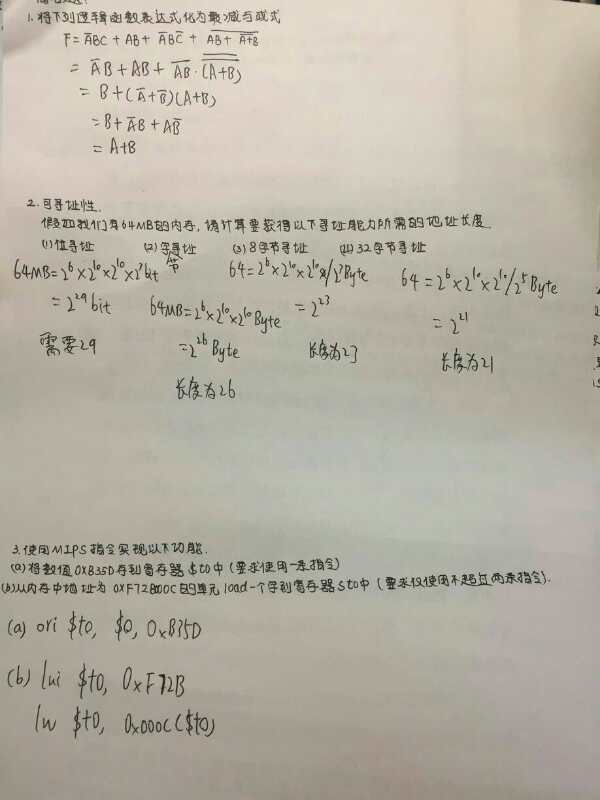 1.将下列逻辑函数表达式化为最减与或式
F = A̅BC + AB + A̅BC̅ + \overline{AB + \overline{A+B}}
= A̅B + AB + \overline{AB} · \overline{\overline{(A+B)}}
= B + (A̅+B̅)(A+B)
= B + A̅B + AB̅
= A+B
2.可寻址性.
假如我们有64MB的内存,请计算要获得以下寻址能力所需的地址长度
(1)位寻址 (2)字节寻址 (3)8字节寻址 (4)32字节寻址
64MB=2⁶×2¹⁰×2¹⁰×2³bit
=2²⁹bit
需要29
64MB=2⁶×2¹⁰×2¹⁰Byte
=2²⁶Byte
长度为26
64=2⁶×2¹⁰×2¹⁰/2³Byte
=2²³
长度为23
64=2⁶×2¹⁰×2¹⁰/2⁵Byte
=2²¹
长度为21
3.使用MIPS指令实现以下功能.
(a)将数值0XB35D存到寄存器$t0中(要求使用一条指令)
(b)从内存中地址为0XF72B000C的单元load一个字到寄存器$t0中(要求仅使用不超过两条指令).
(a) ori $t0, $0, 0xB35D
(b) lui $t0, 0xF72B
lw $t0, 0x000C($t0)